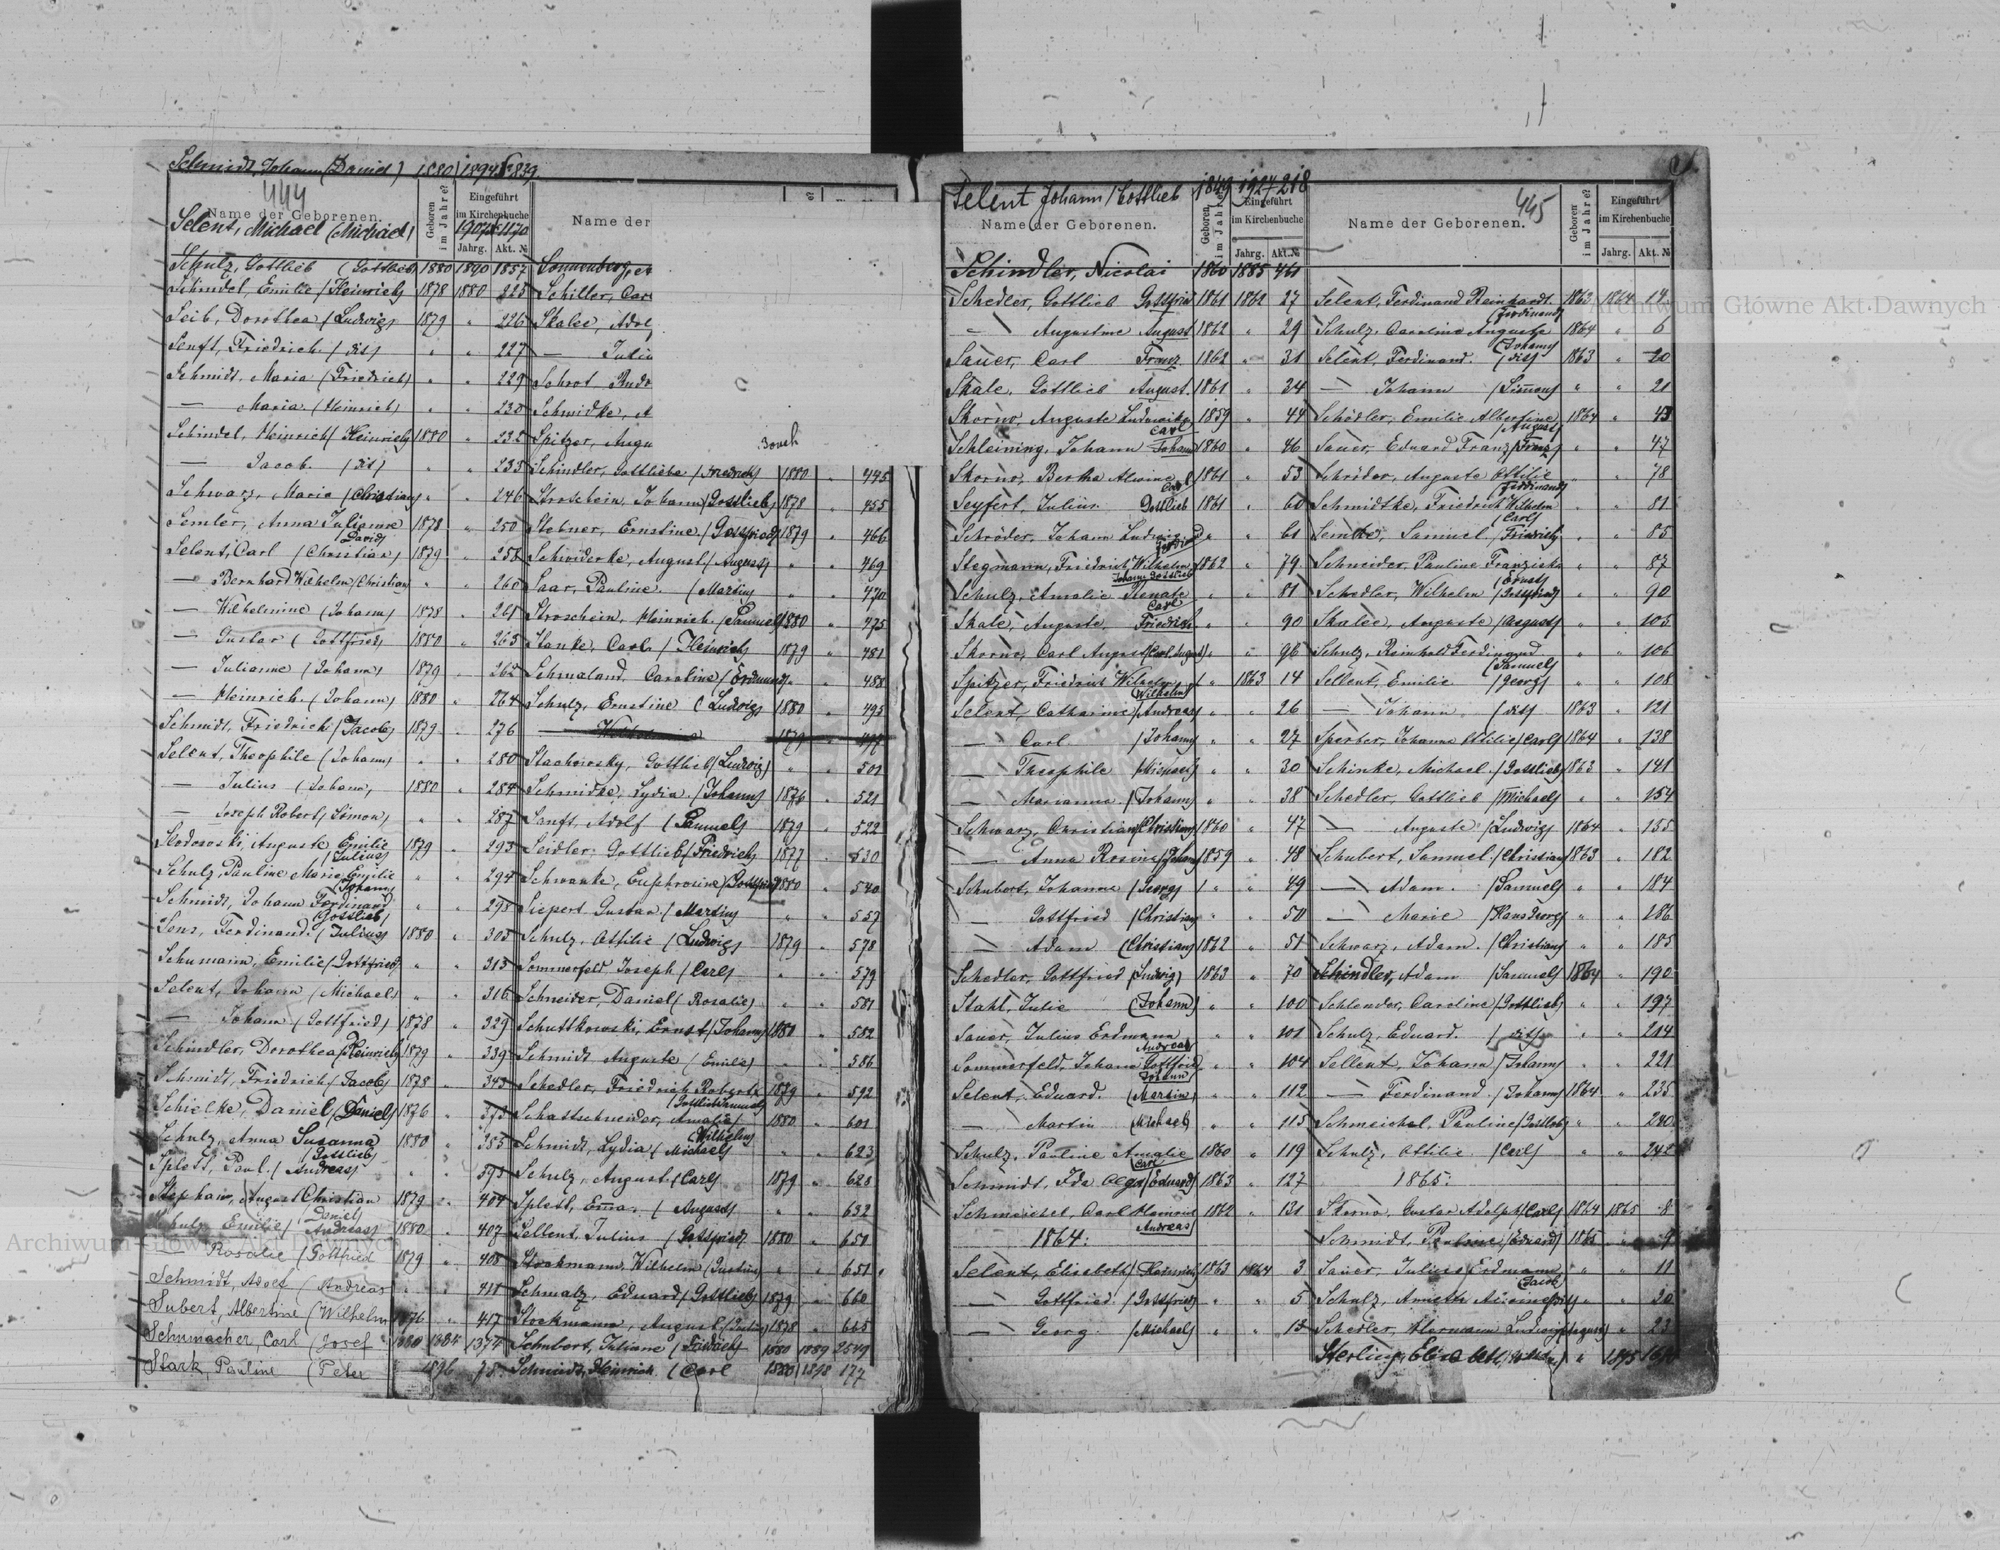 Schmidt, Johann (David) 1880 1894 839.
444
Name der Geborenen.
Geboren im Jahre?
Eingeführt im Kirchenbuche
Jahrg. Akt. №
Selent, Michael (Michael) 1907 1170
Schulz, Gottlieb (Gottlieb) 1880 1890 1857
Schindel, Emilie (Heinrich) 1878 1880 225
Seib, Dorothea (Ludwig) 1879 " 226
Senft, Friedrich (dit) " " 227
Schmidt, Maria (Friedrich) " " 229
— Maria (Heinrich) " " 230
Schindel, Heinrich (Heinrich) 1880 " 232
— Jacob. (dit) " " 233
Schwarz, Maria (Christian) " " 246
Semler, Anna Julianne (David) 1878 " 250
Selent, Carl (Christian) 1879 " 258
— Bernhard Wilhelm (Christian) " " 260
— Wilhelmine (Johann) 1878 " 261
— Gustav (Gottfried) 1880 " 263
— Julianne (Johann) 1879 " 262
— Heinrich (Johann) 1880 " 264
Schmidt, Friedrich (Jacob) 1879 " 276
Selent, Theophile (Johann) " " 280
— Julius (Johann) 1880 " 284
— Joseph Robert (Simon) " " 287
Auguste Emilie (Julius) 1879 " 293
Schulz, Pauline Marie Emilie (Johann) " " 294
Schmidt, Johann Ferdinand (Gottlieb) " " 298
Sens, Ferdinand (Julius) 1880 " 305
Schumann, Emilie (Gottfried) " " 313
Selent, Johann (Michael) " " 316
— Johann (Gottfried) 1878 " 329
Schindler, Dorothea (Heinrich) 1879 " 339
Schmidt, Friedrich (Jacob) 1878 " 343
Schielke, Daniel (Daniel) 1876 " 373
Schulz, Anna Susanna (Gottlieb) 1880 " 385
Splett, Paul (Andreas) " " 393
Stephan, August Christian (Daniel) 1879 " 404
Schulz, Emilie (Andreas) 1880 " 407
Rosalie (Gottfried) 1879 " 408
Schmidt, Adolf (Andreas) " " 411
Subert, Albertine (Wilhelm) 1876 " 417
Schumacher, Carl (Josef) 1880 1884 1374
Stark, Pauline (Peter) 1896 78
Name der
Sonnenberg, er
Schiller, Car
Skalee, Adol
— Julia
Schrot, Rudo
Schmidke, A
Spitzer, Augu
Schindler, Gottliebe (Friedrich) 1880 " 445
Stroschein, Johann (Gottlieb) 1878 " 455
Stebner, Ernstine (Gottfried) 1879 " 466
Schwiderke, August (August) " " 469
Saar, Pauline. (Martin) " " 470
Stroschein, Heinrich (Samuel) 1880 " 475
Stanke, Carl (Heinrich) 1879 " 481
Schmaland, Caroline (Erdmann) " " 488
Schulz, Ernstine (Ludwig) 1880 " 495
1879 " 497
Stachowsky, Gottlieb (Ludwig) " " 501
Schmidke, Lydia (Johann) 1876 " 521
Sanft, Adolf (Samuel) 1879 " 522
Seidler, Gottlieb (Friedrich) 1877 " 530
Schwanke, Euphrosine (Gottfried) 1880 " 540
Siepert, Gustav (Martin) " " 557
Schulz, Ottilie (Ludwig) 1879 " 578
Sommerfeld Joseph (Carl) " " 579
Schneider, Daniel (Rosalie) " " 581
Schuttkowski, Ernst (Johann) 1880 " 582
Schmidt Auguste (Emilie) " " 586
Schedler, Friedrich Robert (Gottlieb Samuel) 1879 " 592
Schattschneider, Amalie (Wilhelm) 1880 " 601
Schmidt, Lydia (Michael) " " 623
Schulz, August (Carl) 1879 " 628
Splett, Emma (August) " " 632
Sellent, Julius (Gottfried) 1880 " 650
Stockmann, Wilhelm (Justine) " " 651
Schmalz, Eduard (Gottlieb) 1879 " 660
Stockmann, August (Justine) 1878 " 665
Schubert, Juliane (Friedrich) 1880 1889 2549
Schmidt, Heinrich (Carl) 1880 1898 177
Selent Johann (Gottlieb) 1849 1924 218
Name der Geborenen.
Geboren im Jahre?
Eingeführt im Kirchenbuche
Jahrg. Akt. №
Schindler, Nicolai 1860 1885 461
Schedler, Gottlieb Gottfried 1861 1862 27
— Augustine August 1862 " 29
Sauer, Carl Franz 1862 " 31
Skale, Gottlieb August. 1861 " 34
Skorno, Auguste Ludowika Carl 1859 " 44
Schleining, Johann Johann 1860 " 46
Skorno, Bertha Alwine Carl 1861 " 53
Seyfert, Julius Gottlieb 1861 " 60
Schröder, Johann Ludwig " " 61
Stegmann, Friedrich Wilhelm Johann Gottlieb 1862 " 79
Schulz, Amalie Renate Carl " " 81
Skale, Auguste Friedrich " " 90
Skorno, Carl August (Carl August) " " 96
Spitzer, Friedrich Wilhelm (Wilhelm) " 1863 14
Selent, Catharine (Andreas) " " 26
— Carl (Johann) " " 27
— Theophile (Michael) " " 30
— Marianna (Johann) " " 38
Schwarz, Christian (Christian) 1860 " 47
— Anna Rosine (Johann) 1859 " 48
Schubert, Johanne (Georg) " " 49
— Gottfried (Christian) " " 50
— Adam (Christian) 1862 " 51
Schedler, Gottfried (Ludwig) 1863 " 70
Stahl, Julie (Johann) " " 100
Sauer, Julius Erdmann Andreas " " 101
Sommerfeld, Johann Gottfried Johann " " 104
Selent, Eduard. (Martin) " " 112
— Martin (Michael) " " 115
Schulz, Pauline Amalie (Carl) 1860 " 119
Schmidt, Ida Olga (Eduard) 1863 " 127
Schmeichel, Carl (Andreas) 1860 " 131
1864:
Selent, Elisabeth (Heinrich) 1863 1864 3
— Gottfried (Gottfried) " " 5
— Georg (Michael) " " 13
445
Name der Geborenen.
Geboren im Jahre?
Eingeführt im Kirchenbuche
Jahrg. Akt. №
Selent, Ferdinand Reinhardt (Ferdinand) 1863 1864 14
Schulz, Caroline Auguste (Johann) 1864 " 6
Selent, Ferdinand (dit) 1863 " 20
— Johann (Simon) " " 21
Schödler, Emilie Albertine (August) 1864 " 43
Sauer, Eduard Franz (Franz) " " 47
Schröder, Auguste Ottilie (Ferdinand) " 78
Schmidtke, Friedrich Wilhelm (Carl) " " 81
Semtke, Samuel (Friedrich) " " 85
Schneider, Pauline Franziska (Ernst) " " 87
Schedler, Wilhelm (Gottfried) " " 90
Skalee, Auguste (August) " " 105
Schulz, Reinhold Ferdinand (Samuel) " " 106
Sellent, Emilie (Georg) " " 108
— Johann (dit) 1863 " 121
Sperber, Johanne Ottilie (Carl) 1864 " 138
Schinke, Michael (Gottlieb) 1863 " 141
Schedler, Gottlieb (Michael) " " 154
— Auguste (Ludwig) 1864 " 155
Schubert, Samuel (Christian) 1863 " 182
— Adam. (Samuel) " " 184
— Marie (Hans Georg) " " 186
Schwarz, Adam. (Christian) " " 185
Schindler, Adam (Samuel) 1864 " 190
Schlender, Caroline (Gottlieb) " " 197
Schulz, Eduard. (dit) " " 214
Sellent, Johann (Johann) " " 221
— Ferdinand (Johann) 1864 " 235
Schmeichel, Pauline (Gottlob) " " 240
Schulz, Ottilie (Carl) " " 242
1865:
Skorno, Gustav Adolph (Carl) 1864 1865 8
Schmidt, Pauline (Eduard) 1865 " 9
Sauer, Julius Erdmann (Jacob) " " 11
Schulz, " " 20
Schedler, Hermann Ludwig (August) " " 23
Sterling, Elisabeth " 1895
Archiwum Główne Akt Dawnych
Archiwum Główne Akt Dawnych